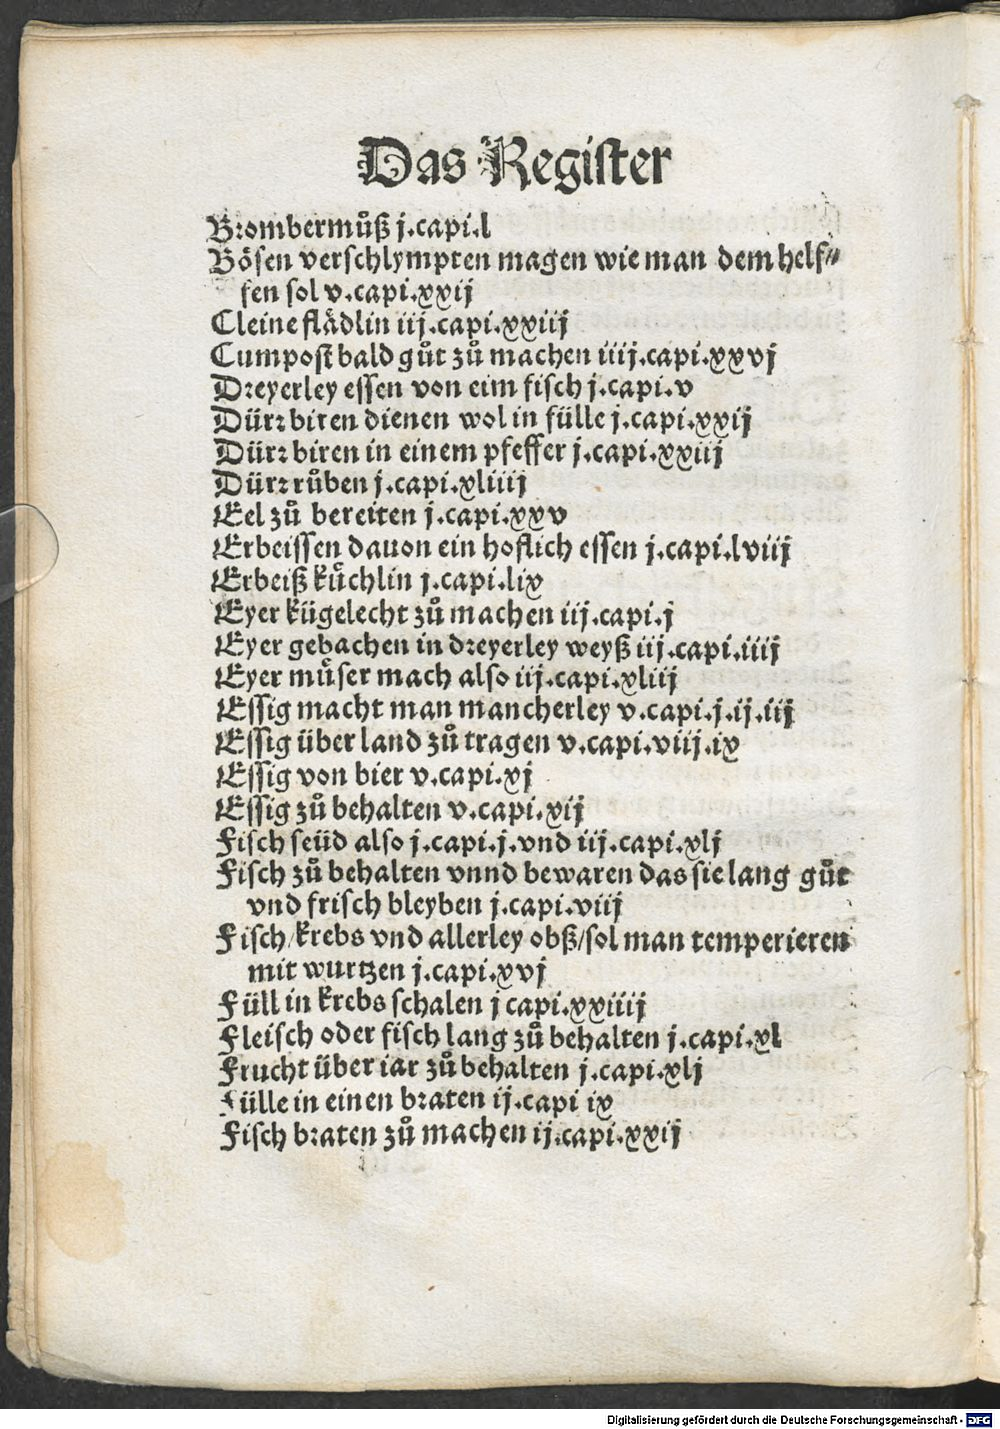 Das Register
Brombermůß j.capi.l
Bösen verschlympten magen wie man dem helf⸗
fen sol v.capi.xxij
Cleine flädlin iij.capi.xxiij
Cumpost bald gůt zů machen iiij.capi.xxvj
Dreyerley essen von eim fisch j.capi.v
Dürr biren dienen wol in fülle j.capi.xxij
Dürr biren in einem pfeffer j.capi.xxiij
Dürr růben j.capi.xliiij
Eel zů bereiten j.capi.xxv
Erbeissen dauon ein hoflich essen j.capi.lviij
Erbeiß küchlin j.capi.lix
Eyer kügelecht zů machen iij.capi.j
Eyer gebachen in dreyerley weyß iij.capi.iiij
Eyer müser mach also iij.capi.xliij
Essig macht man mancherley v.capi.j.ij.iij
Essig über land zů tragen v.capi.viij.ix
Essig von bier v.capi.xj
Essig zů behalten v.capi.xij
Fisch seüd also j.capi.j.vnd iij.capi.xlj
Fisch zů behalten vnnd bewaren das sie lang gůt
vnd frisch bleyben j.capi.viij
Fisch/krebs vnd allerley obß/sol man temperieren
mit wurtzen j.capi.xvj
Füll in krebs schalen j capi.xxiiij
Fleisch oder fisch lang zů behalten j.capi.xl
Frucht über iar zů behalten j.capi.xlj
Fülle in einen braten ij.capi ix
Fisch braten zů machen ij.capi.xxij
Digitalisierung gefördert durch die Deutsche Forschungsgemeinschaft - DFG